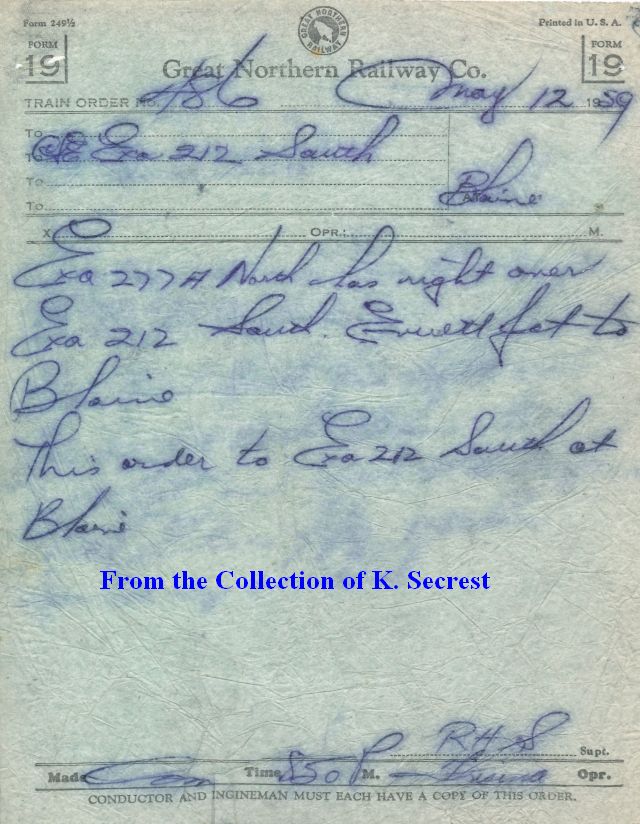 Form 249½
Printed in U. S. A.
GREAT NORTHERN RAILWAY
FORM 19
FORM 19
Great Northern Railway Co.
TRAIN ORDER No. 486 May 12 1959
To
To C&E Exa 212 South
To
To Blaine
X OPR.: M.
Exa 277A North has right over
Exa 212 South Everett Jct to
Blaine
This order to Exa 212 South at
Blaine
From the Collection of K. Secrest
RHS Supt.
Made Com Time 550 P M. Opr.
CONDUCTOR AND INGINEMAN MUST EACH HAVE A COPY OF THIS ORDER.